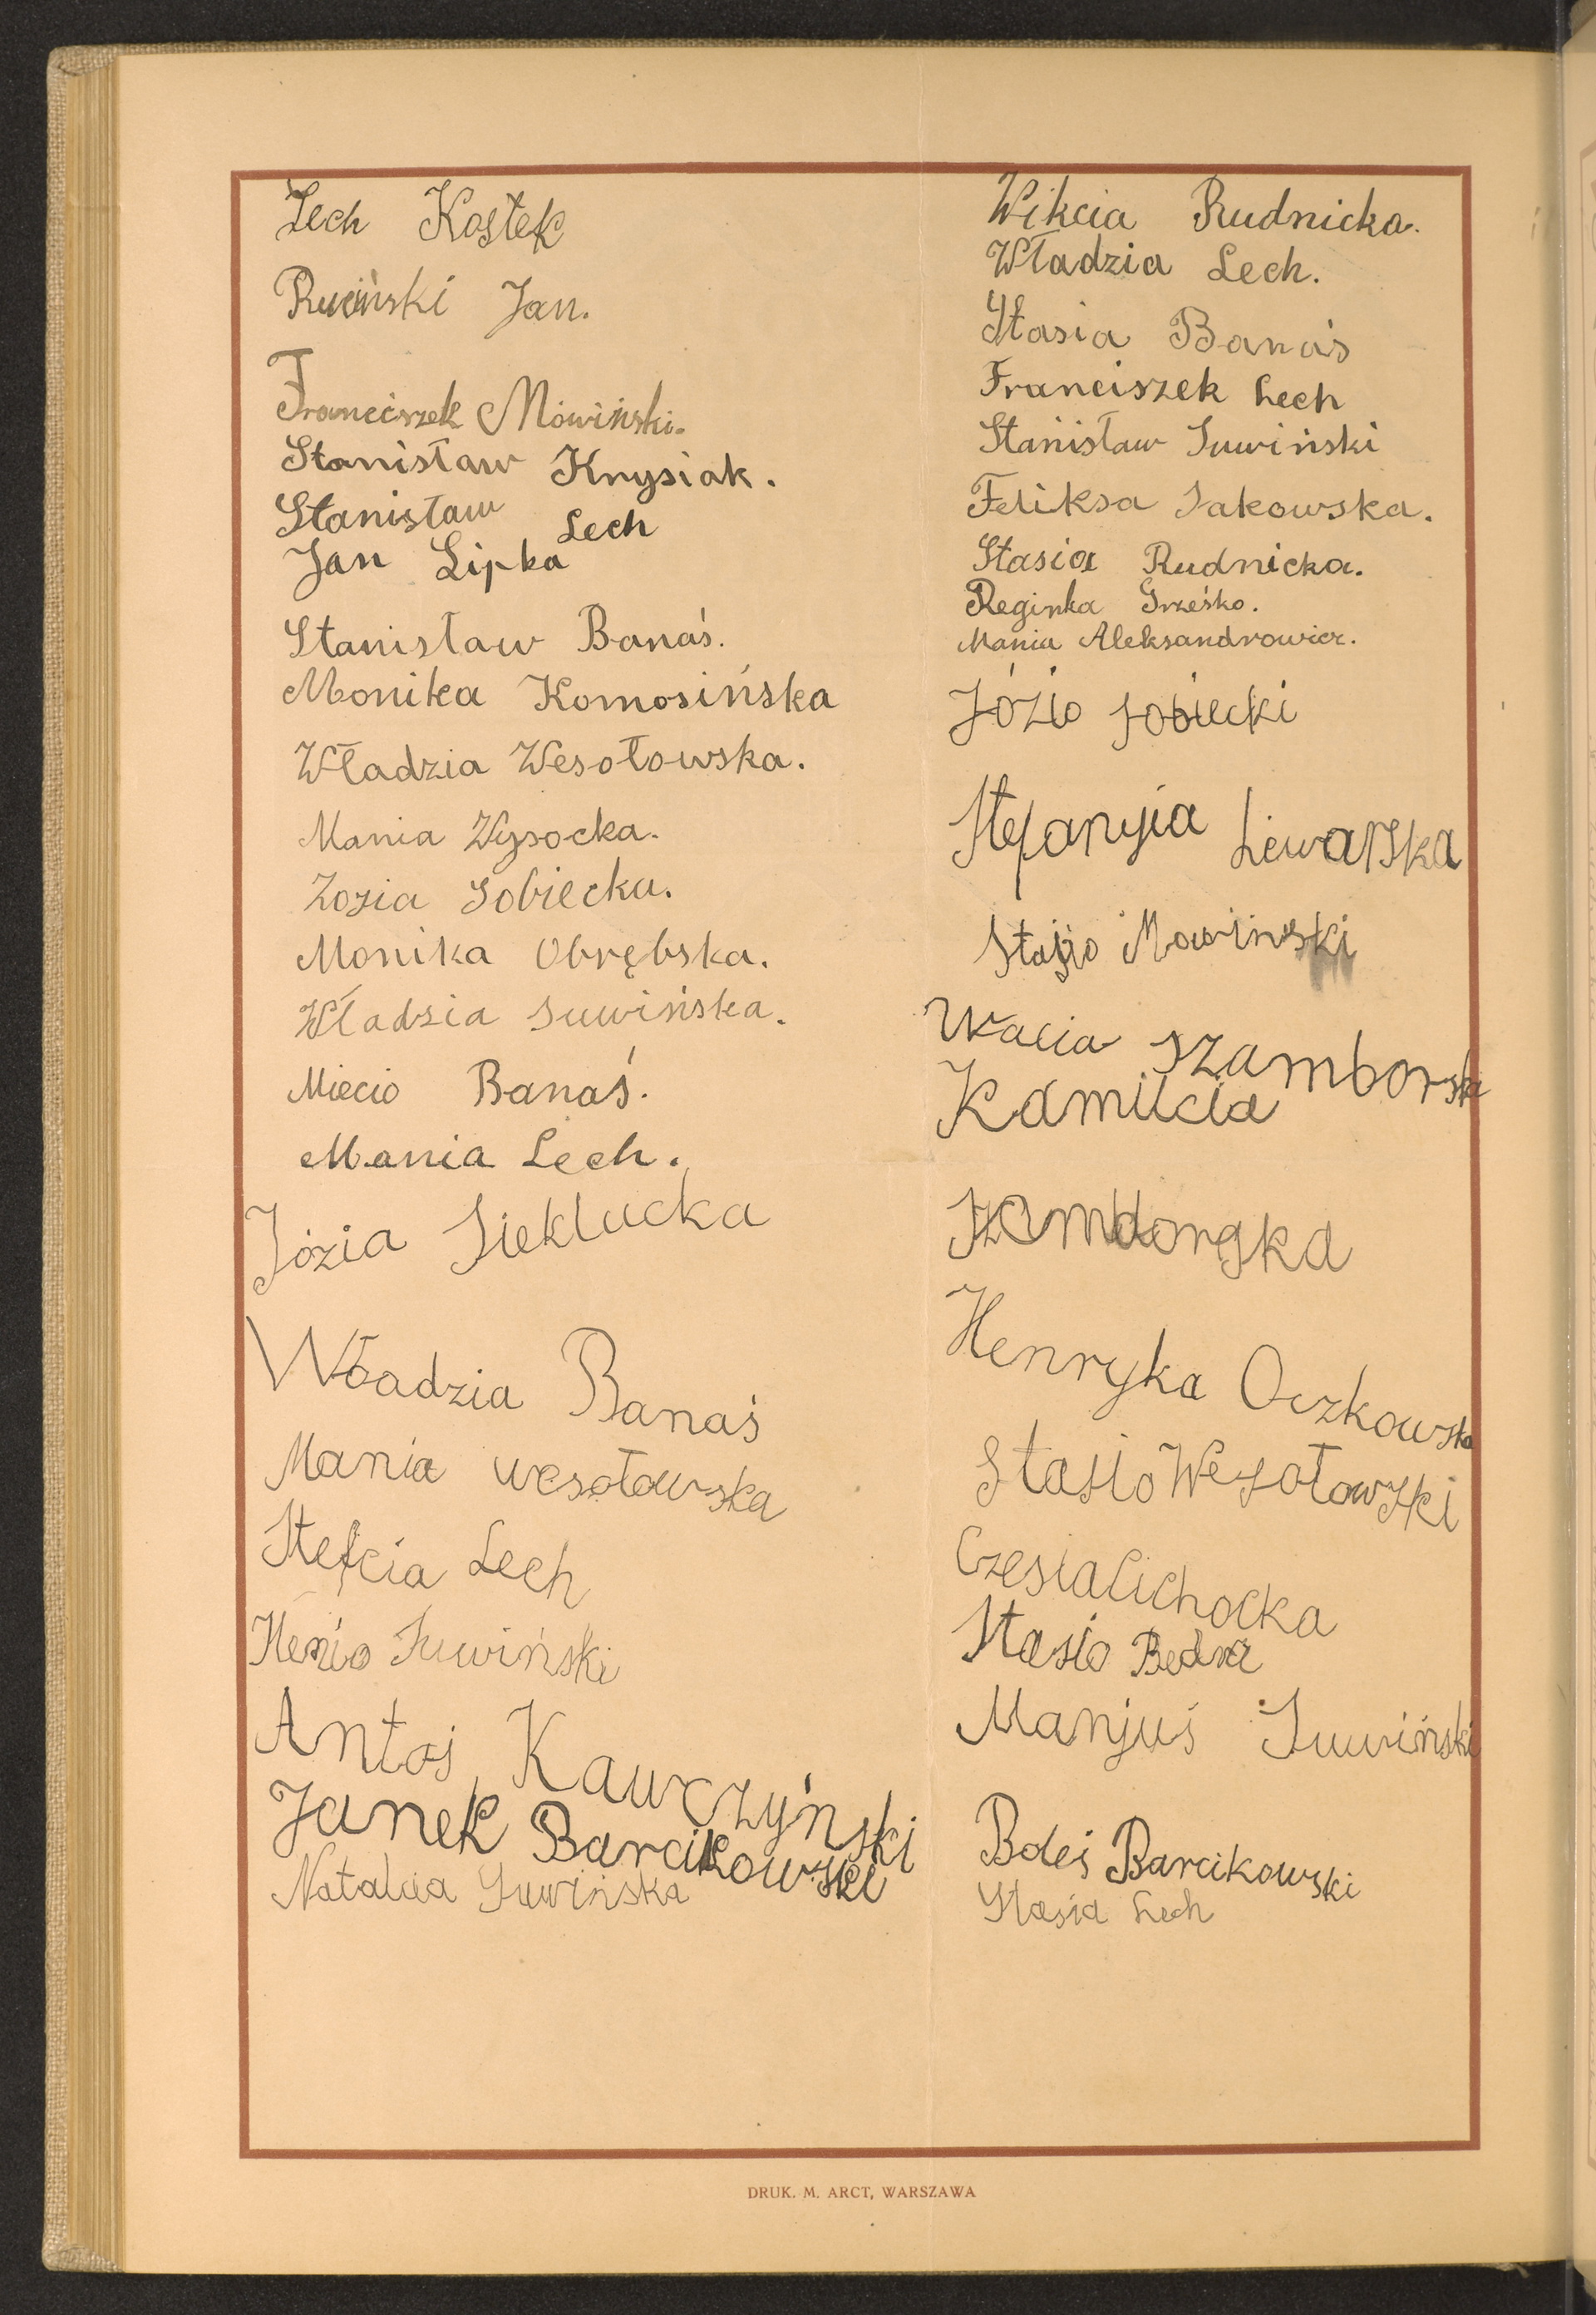 Lech Kostek
Ruciński Jan.
Franciszek Mówiński.
Stanisław Krysiak.
Stanisław Lech
Jan Lipka
Stanisław Banaś.
Monika Komosińska
Władzia Wesołowska.
Mania Wysocka.
Zosia Sobiecka.
Monika Obrębska.
Władzia Suwińska.
Miecio Banaś.
Mania Lech.
Józia Sieklucka
Władzia Banaś
Mania wesołowska
Stefcia Lech
Henio Suwiński
Antoś Kawczyński
Janek Barcikowski
Natalcia Suwińska
Wikcia Rudnicka.
Władzia Lech.
Stasia Banaś
Franciszek Lech
Stanisław Suwiński
Feliksa Sakowska.
Stasia Rudnicka.
Reginka Grześko.
Mania Aleksandrowicz.
Józio Sobiecki
Stefanyja Lewarska
Stasio Mowinski
Wacia Szamborska
Kamilcia
Szamborska
Henryka Oczkowska
Stasio Wesołowski
Czesia Cichocka
Stasio
Manjuś Suwiński
Boleś Barcikowski
Stasia Lech
DRUK. M. ARCT, WARSZAWA